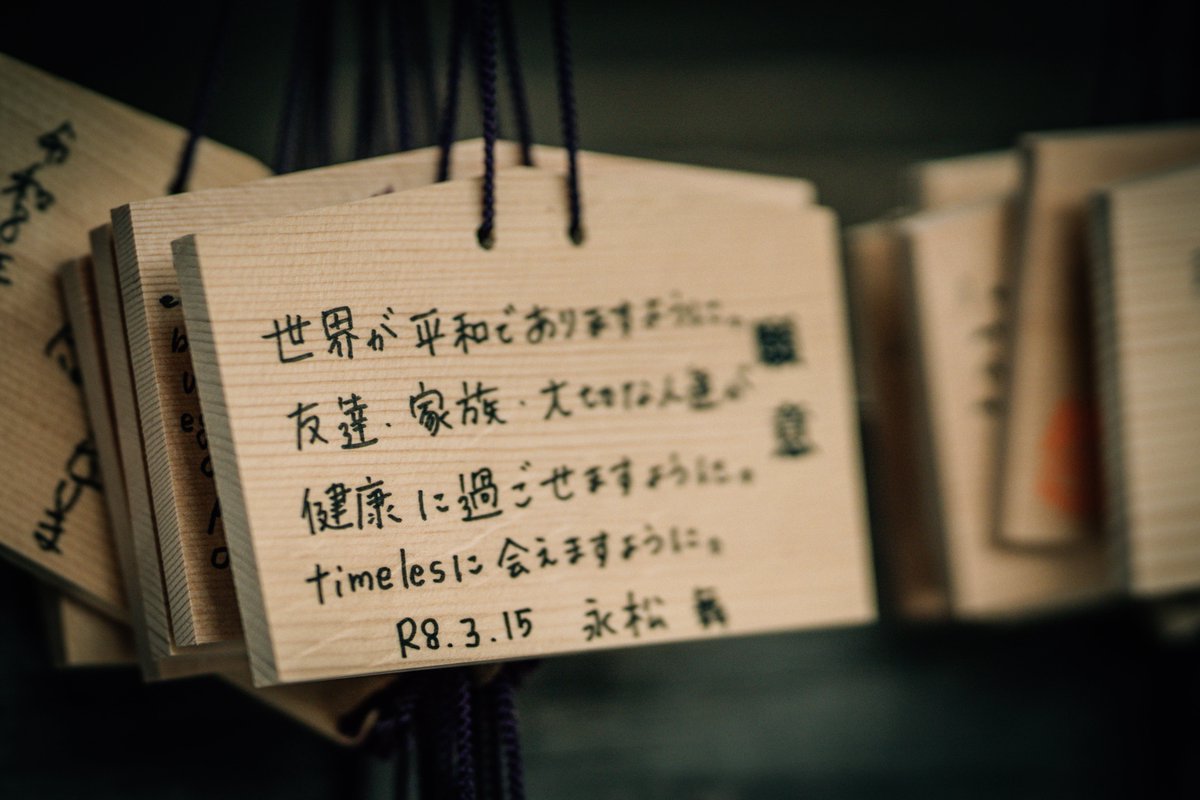 世界が平和でありますように。
友達・家族・大切な人達が
健康に過ごせますように。
timelesに会えますように。
R8.3.15 永松